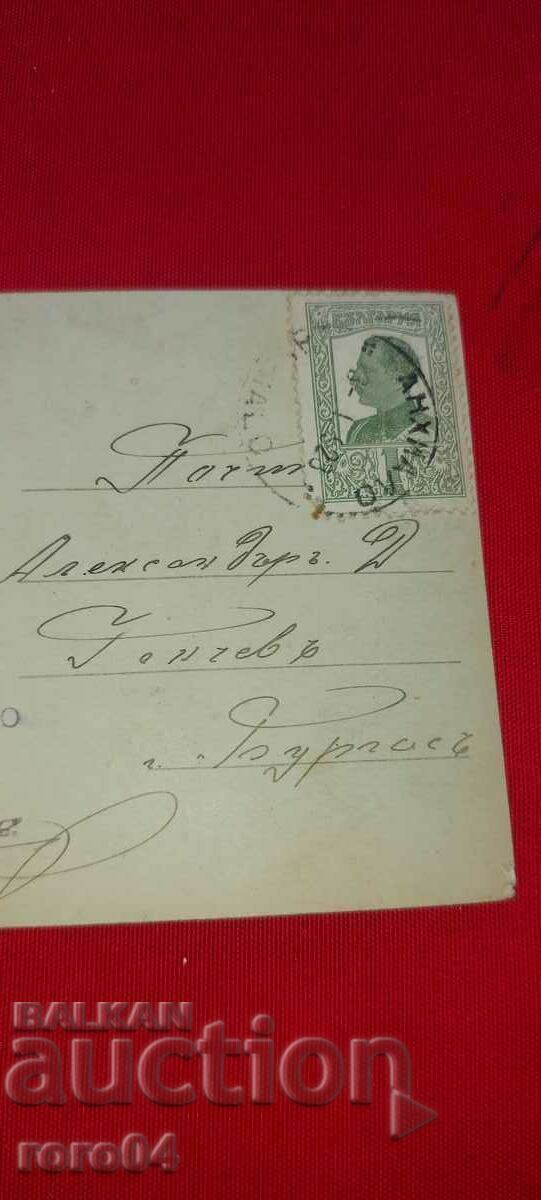 БЪЛГАРИЯ
1
АНХИАЛО
ИАЛО
Почит
Александъръ Д
Гончевъ
г. Бургасъ
BALKAN
auction
roro04